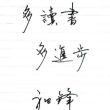 多讀書
多進步
和鋒